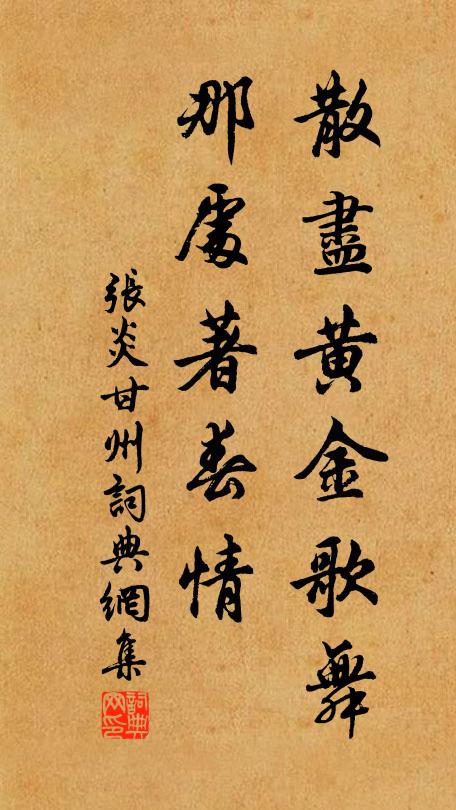 散盡黃金歌舞
那處著春情
張炎甘州詞典網集
詞典網印